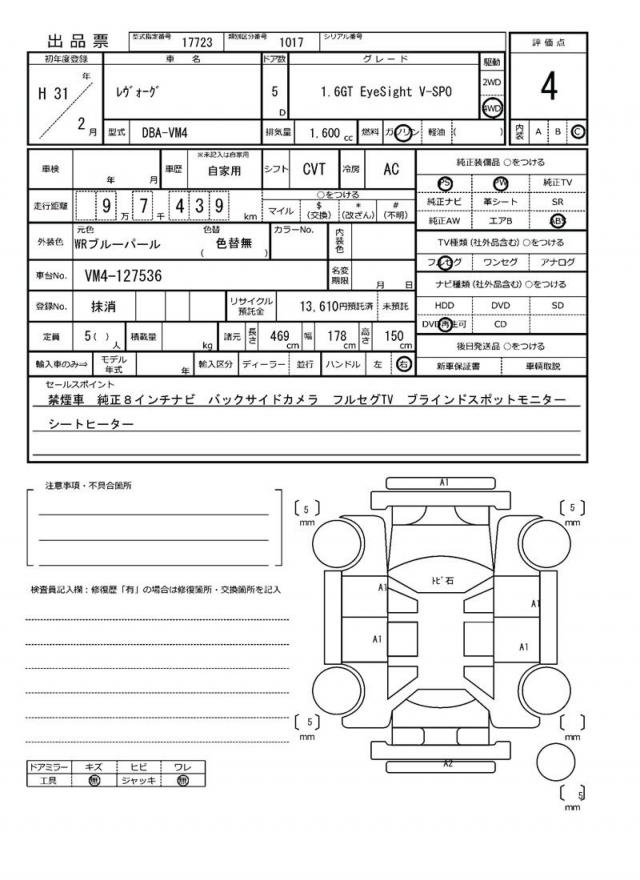 出品票 型式指定番号 17723 類別区分番号 1017 シリアル番号
評価点
4
内装 A B C
初年度登録 車名 ドア数 グレード 駆動
H 31 年 2 月
ﾚｳﾞｫｰｸﾞ 5 D 1.6GT EyeSight V-SPO 2WD 4WD
型式 DBA-VM4 排気量 1.600 cc 燃料 ガソリン 軽油 ( )
車検 年 月 車歴 ※未記入は自家用 自家用 シフト CVT 冷房 AC
走行距離 9 万 7 千 4 3 9 km ○をつける マイル $ (交換) * (改ざん) # (不明)
外装色 元色 WRブルーパール 色替 ( 色替無 ) カラーNo. 内装色
車台No. VM4-127536 名変期限 月 日
登録No. 抹消 リサイクル預託金 13,610円預託済 未預託
定員 5( ) 人 積載量 kg 諸元 長さ 469 cm 幅 178 cm 高さ 150 cm
輸入車のみ⇒ モデル年式 年 輸入区分 ディーラー 並行 ハンドル 左 右
純正装備品 ○をつける
PS PW 純正TV
純正ナビ 革シート SR
純正AW エアB ABS
TV種類(社外品含む) ○をつける
フルセグ ワンセグ アナログ
ナビ種類(社外品含む) ○をつける
HDD DVD SD
DVD再生可 CD
後日発送品 ○をつける
新車保証書 車輌取説
セールスポイント
禁煙車 純正８インチナビ バックサイドカメラ フルセグTV ブラインドスポットモニター
シートヒーター
注意事項・不具合箇所
検査員記入欄：修復歴「有」の場合は修復箇所・交換箇所を記入
ドアミラー キズ ヒビ ワレ
工具 無 ジャッキ 無
A1
[ 5 ] mm
[ 5 ] mm
ﾄﾋﾞ石
A1
A1
A1
A1
[ 5 ] mm
[ ] mm
A2
[ 5 ] mm